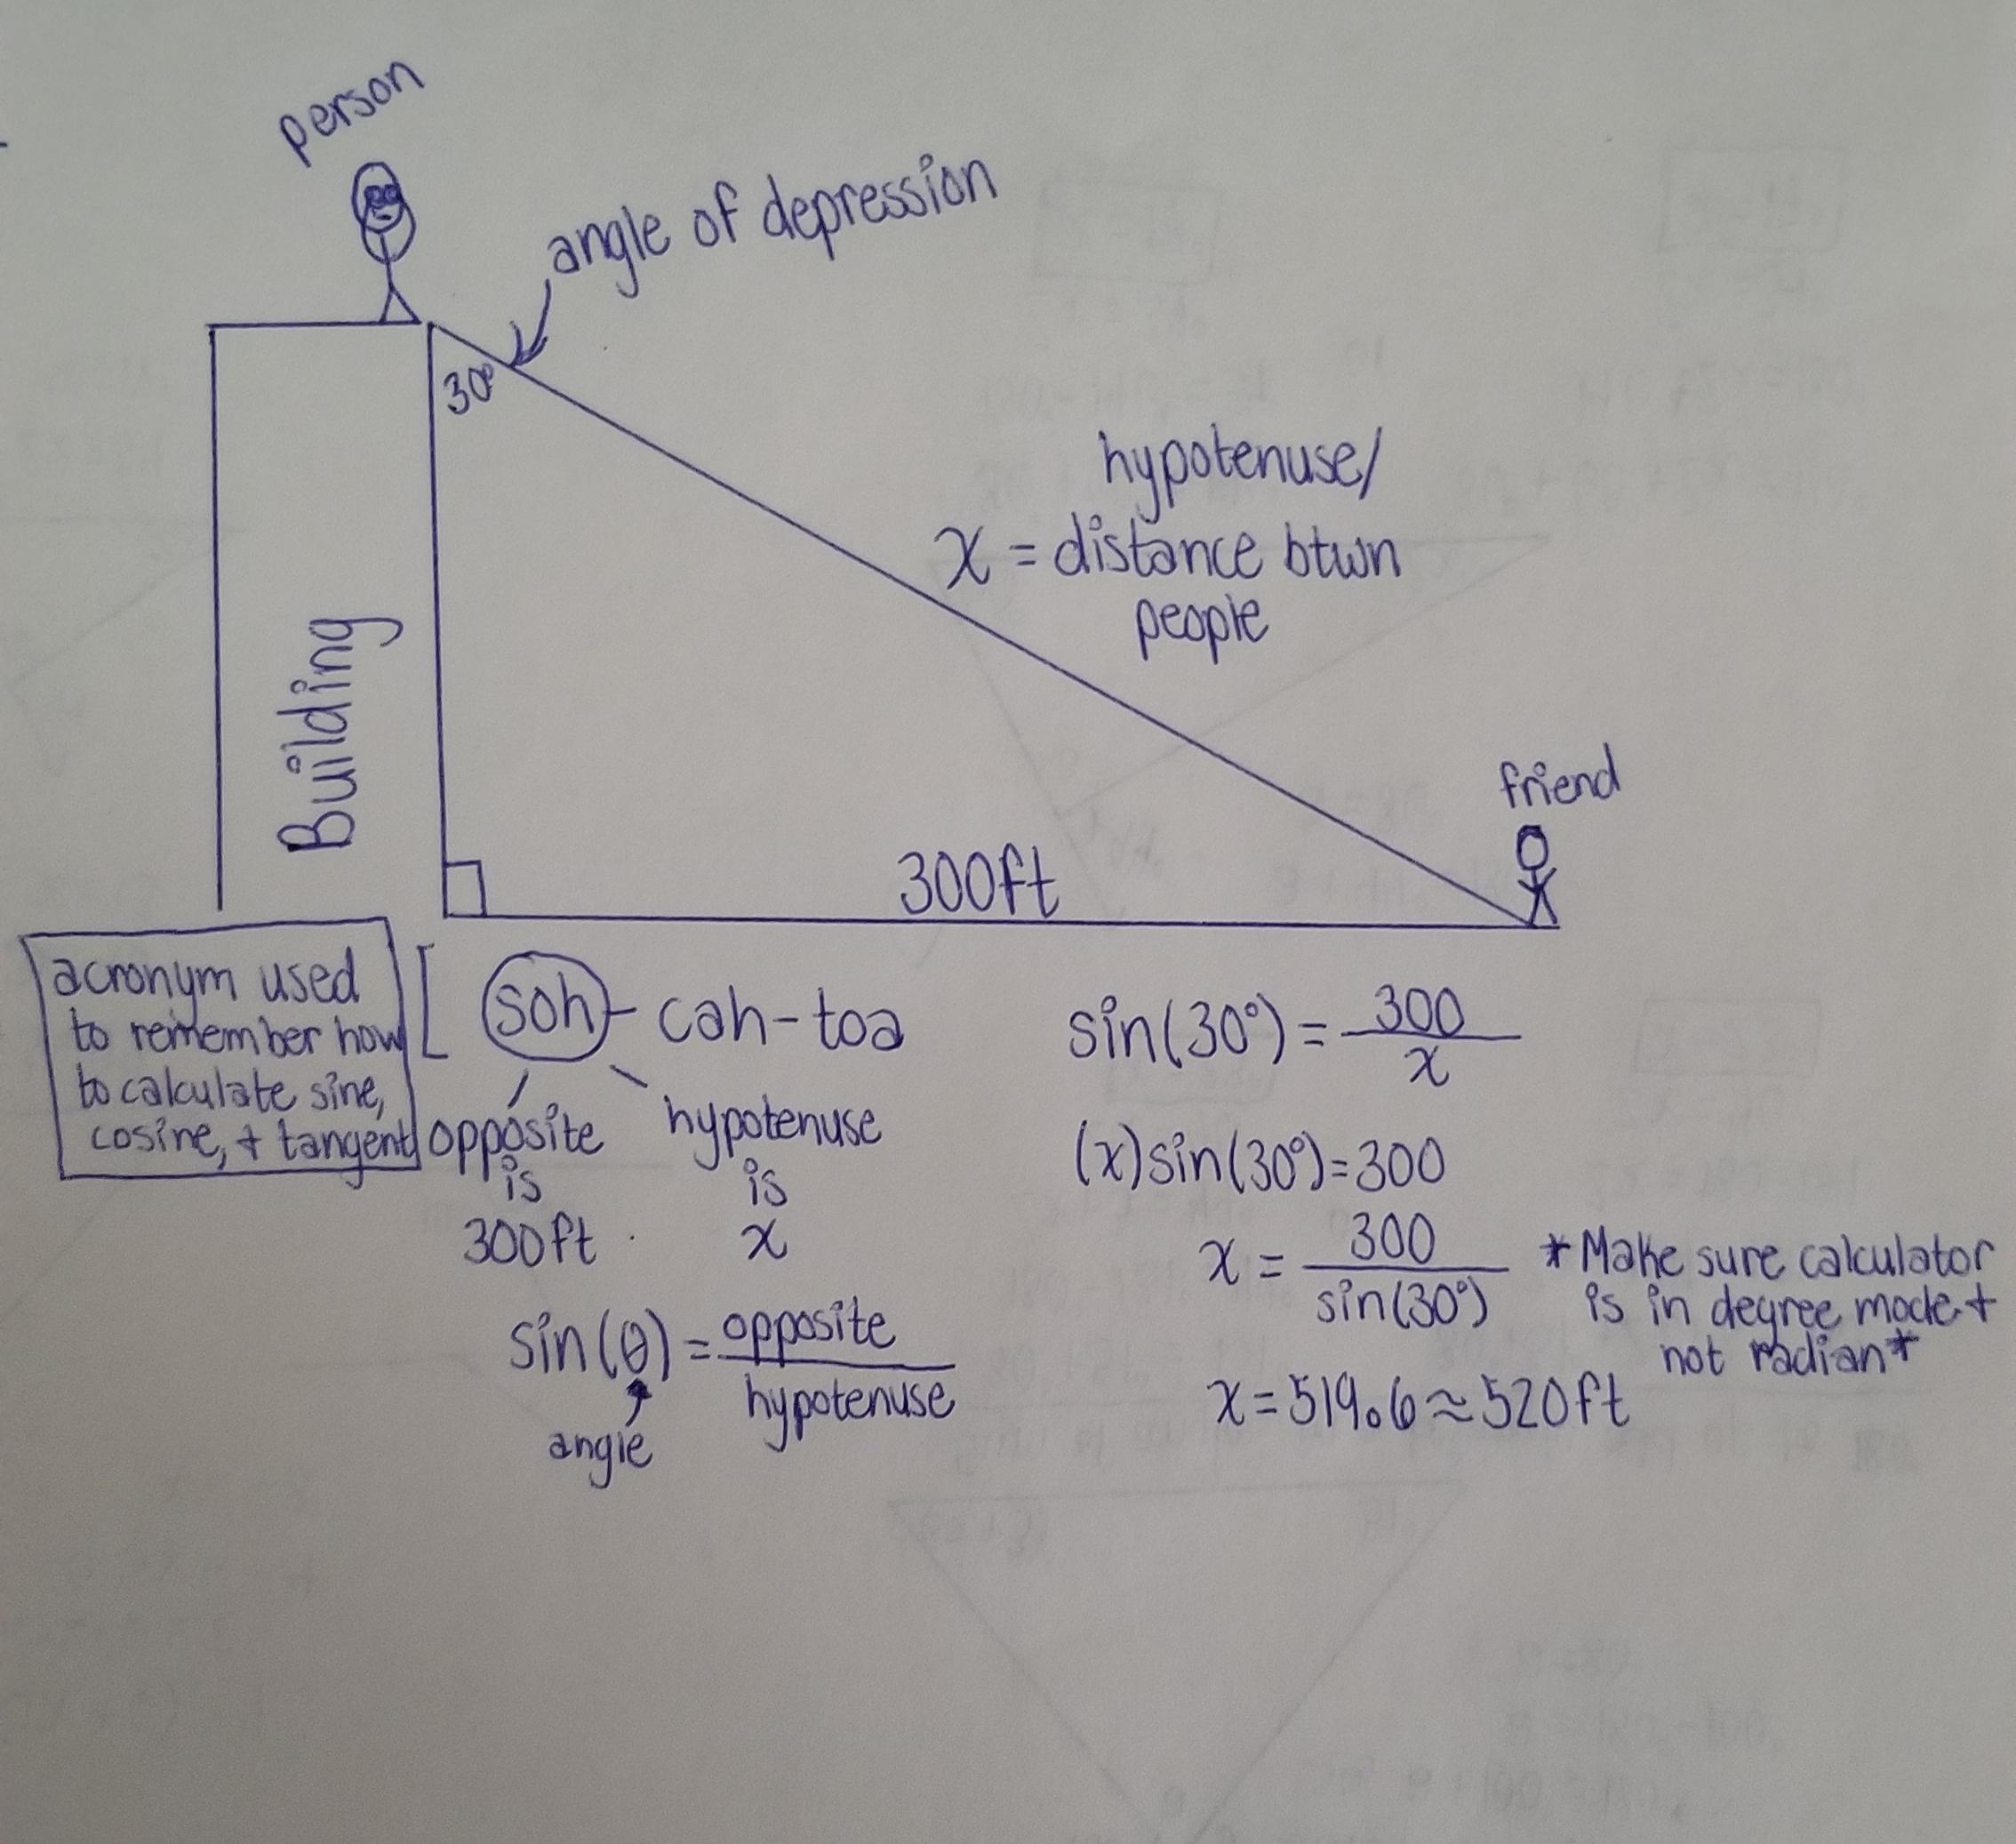 person
angle of depression
30°
hypotenuse/
x = distance btwn
people
Building
friend
300ft
acronym used
to remember how
to calculate sine,
cosine, + tangent
[ soh - cah - toa
opposite
is
300ft
hypotenuse
is
x
sin(θ) = opposite
hypotenuse
angle
sin(30°) = 300
x
(x)sin(30°)=300
x = 300
sin(30°)
*Make sure calculator
is in degree mode +
not radian*
x = 519.6 ≈ 520ft